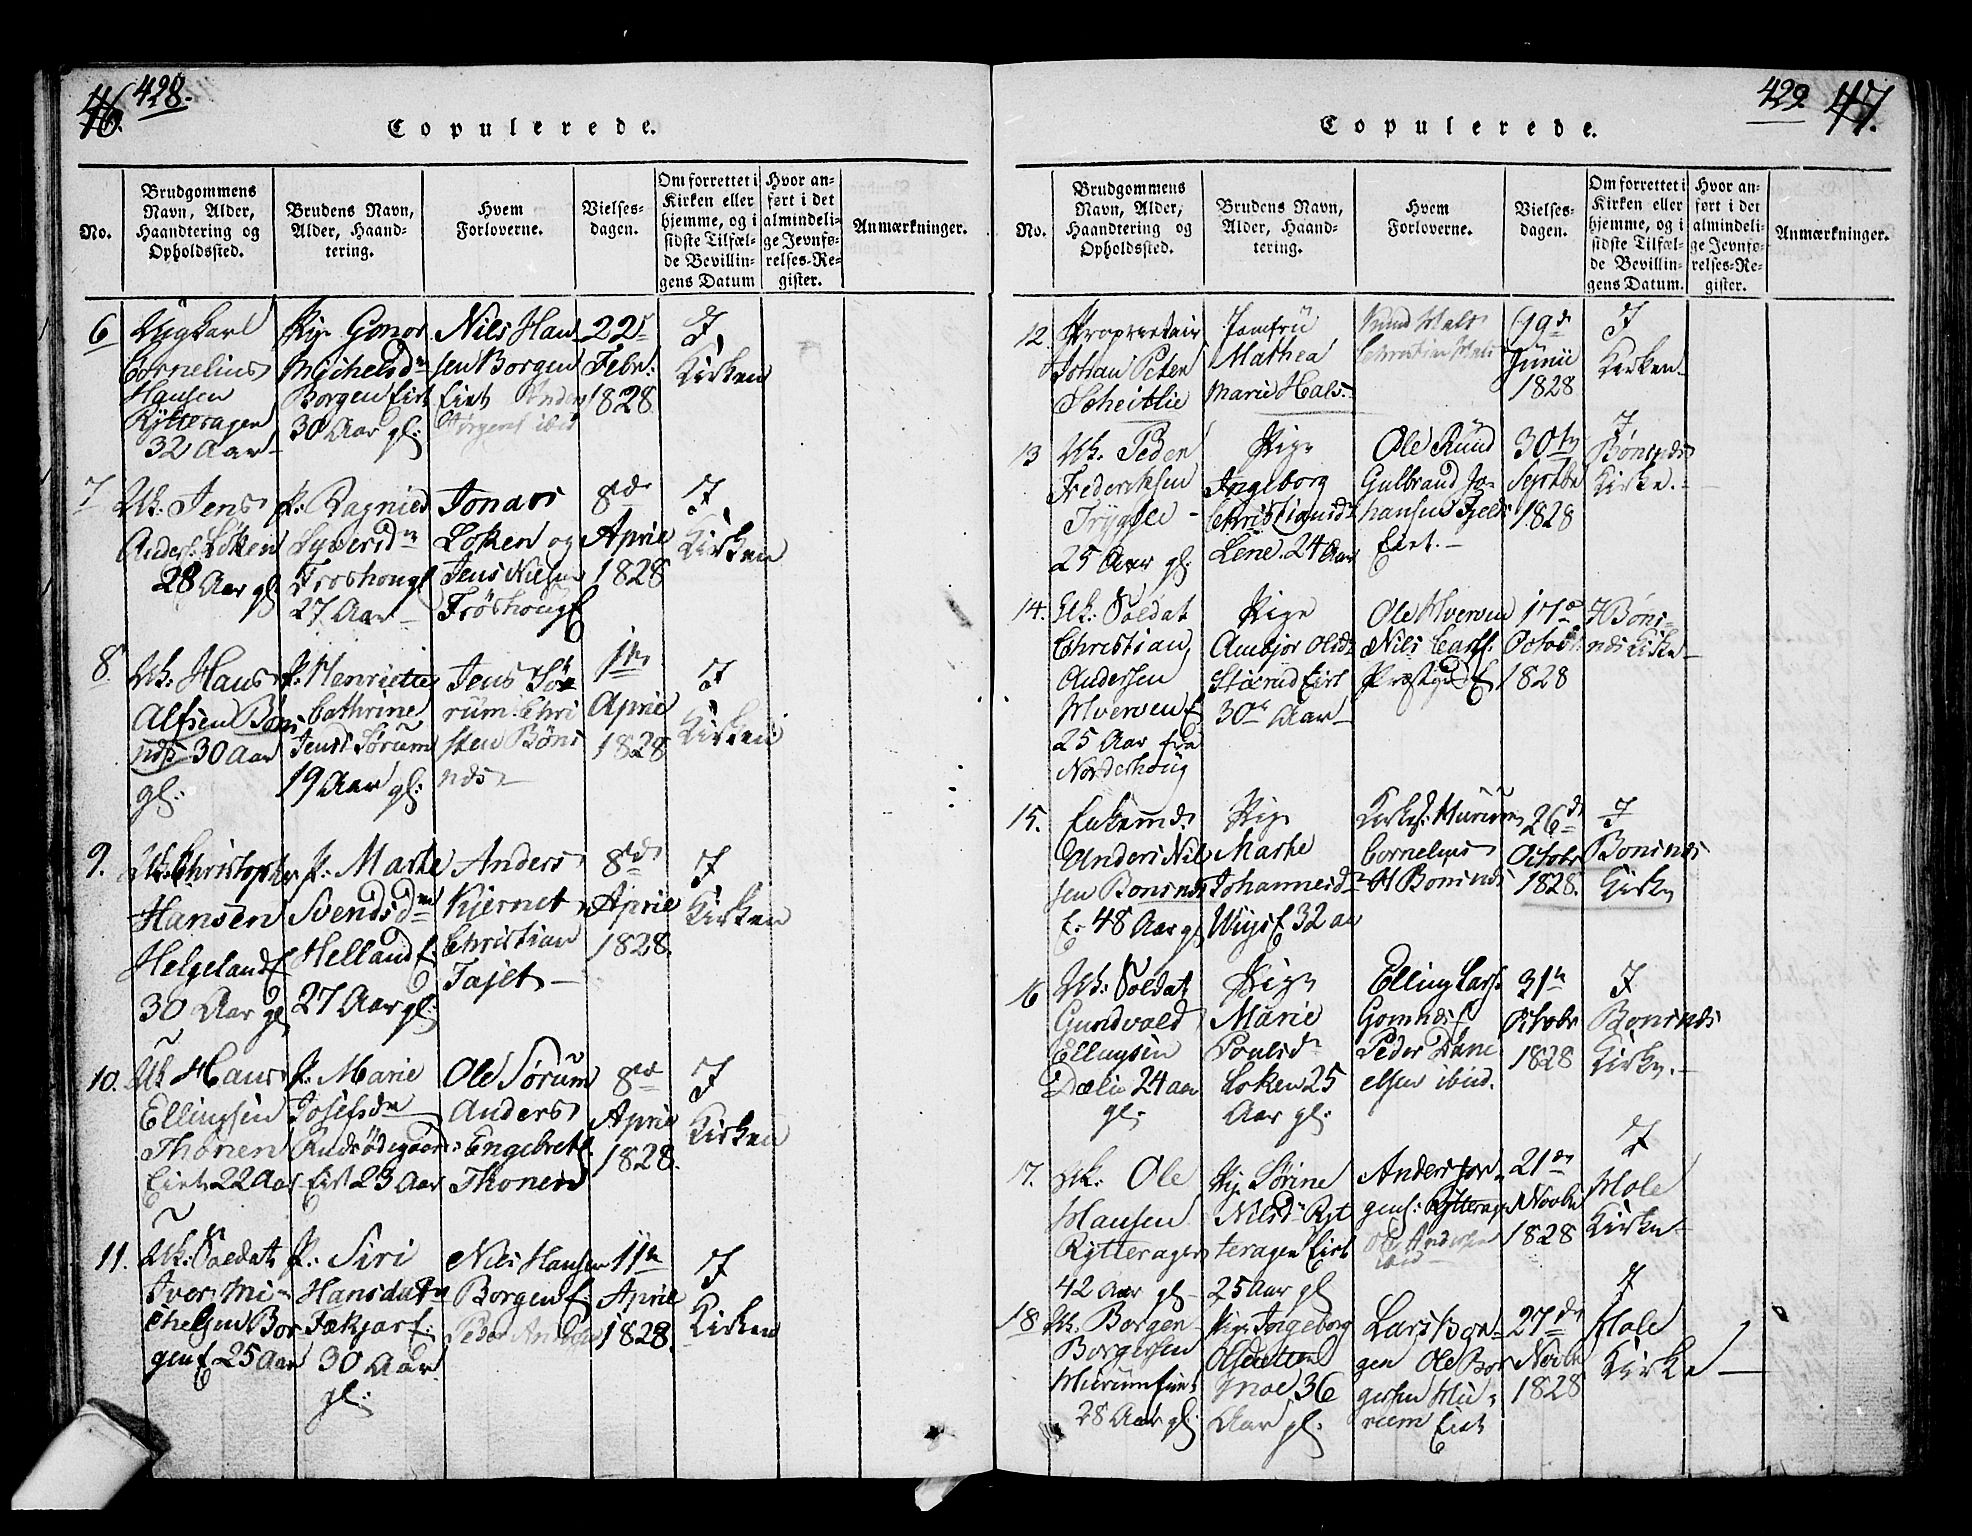 46. 428.
Copulerede.
No.
Brudgommens
Navn, Alder,
Haandtering og
Opholdssted.
Brudens Navn,
Alder, Haand-
tering.
Hvem
Forloverne.
Vielses-
dagen.
Om forrettet i
Kirken eller
hjemme, og i
sidste Tilfæl-
de Bevillin-
gens Datum
Hvor an-
ført i det
almindeli-
ge Jevnfø-
relses-Re-
gister.
Anmærkninger.
6
Ungkarl
Cornelius
Hansen
Rytteragen
32 Aar
Pige Gunor
Michelsdn
Borgen Eiet
30 Aar gl:
Nils Han
sen Borgen
Eiet
ibid
22de
Febr:
1828
I
Kirken
7
Uk. Jens
Anders. Løken
28 Aar gl
P: Ragnild
Troshougf
27 Aar
Jonas
Loken og
Jens Nielsen
Fröshougf
8de
April
1828
I
Kirken
8
Uk: Hans
Alfsen Bøns
nds 30 Aar
gl:
P. Henriette
Cathrine
Jensd Sørum
19 Aar gl:
Jens Sø
rum Chri
sten Bøns
nds
1te
April
1828
I
Kirken
9.
Uk. Christopher
Hansen
Helgelandf
30 Aar gl
P: Marte
Svendsdn
Hellandf:
27 Aar gl:
Anders
Kjernet
Christian
Fajet
8de
April
1828.
I
Kirken
10.
Uk Hans
Ellingsen
Thonen
Eiet 22 Aar
P: Marie
Josefsdn
Rudsødegaard
Eiet 23 Aar
Ole Sørum
Anders
Engebrets.
Thonen
8de
April
1828.
I
Kirken
11.
Uk: Soldat
Iver Mi-
chelsen Bor
genf 25 Aar
P: Siri
Hansdatr
Fækjarf:
30 Aar
gl:
Nils Hansen
Borgenf.
Peder
11te
April
1828.
I
Kirken
429 47.
Copulerede.
No.
Brudgommens
Navn, Alder,
Haandtering og
Opholdssted.
Brudens Navn,
Alder, Haand-
tering.
Hvem
Forloverne.
Vielses-
dagen.
Om forrettet i
Kirken eller
hjemme, og i
sidste Tilfæl-
de Bevillin-
gens Datum.
Hvor an-
ført i det
almindeli-
ge Jevnfø-
relses-Re-
gister.
Anmærkninger.
12.
Proprietair
Johan Peter
Scheitlie
Jomfrü
Mathea
Marie Hals:
Knud Hals
Christian Hals
19de
Junii
1828
I
Kirken
13
Uk. Peder
Frederiksen
Trygsle
25 Aar gl:
Pige
Ingeborg
Christiansdn
Lene. 24 Aar
Ole Rüud
Gulbrand Jo-
hansen Fjeld
Eiet.
30te
Septbr
1828
I
Bönsnds
Kirke.
14.
Uk: Soldat
Christian
Andersen
Hvervenf
25 Aar fra
Norderhoug
Pige
Ambjor Olsdr
Støxrud Eiet
30 Aar
Ole Hverven
Nils Carls.
Præstgrdf
17de
Octobr:
1828
I Böns-
nds Kirke
15.
Enkemd.
Anders Nil
sen Bonsnds
E. 48 Aar gl
Pige
Marthe
Johannesdr
Wiigsf 32 aar
Kirkes: Murum
Cornelius
H Bonsnds
26de
Octobr
1828.
I
Bonsnds
Kirke
16
Uk: Soldat
Gundvold
Ellingsen
Dælie 24 aar
gl:
Pige
Marie
Poulsdr
Loken 25
Aar gl:
Elling Lars.
Gomnæsf
Peder Dani
elsen ibid.
31te
Octobr
1828
I
Bonsnds
Kirke.
17.
Uk. Ole
Hansen
Rytterager
42 Aar gl
Pig. Sørine
Nilsdr Ryt
teragen Eiet
25 Aar gl
Anders Jør-
gens: Rytterag
Ole Andersen
ibid
21de
Novbr
1828
I
Hole
Kirke
18
Uk. Borger
Borgersen
Mürüm Eiet
28 Aar gl:
Pige Ingeborg
Olsdatter
Moe 36
Aar gl:
Lars Bor-
gen Ole Bor
gersen Mü-
rüm Eiet
27de
Novbr
1828
I
Hole
Kirke